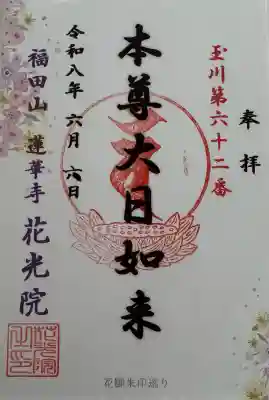 奉拝
玉川第六十二番
本尊大日如来
令和八年 六月 六日
福田山 蓮華寺 花光院
花御朱印巡り